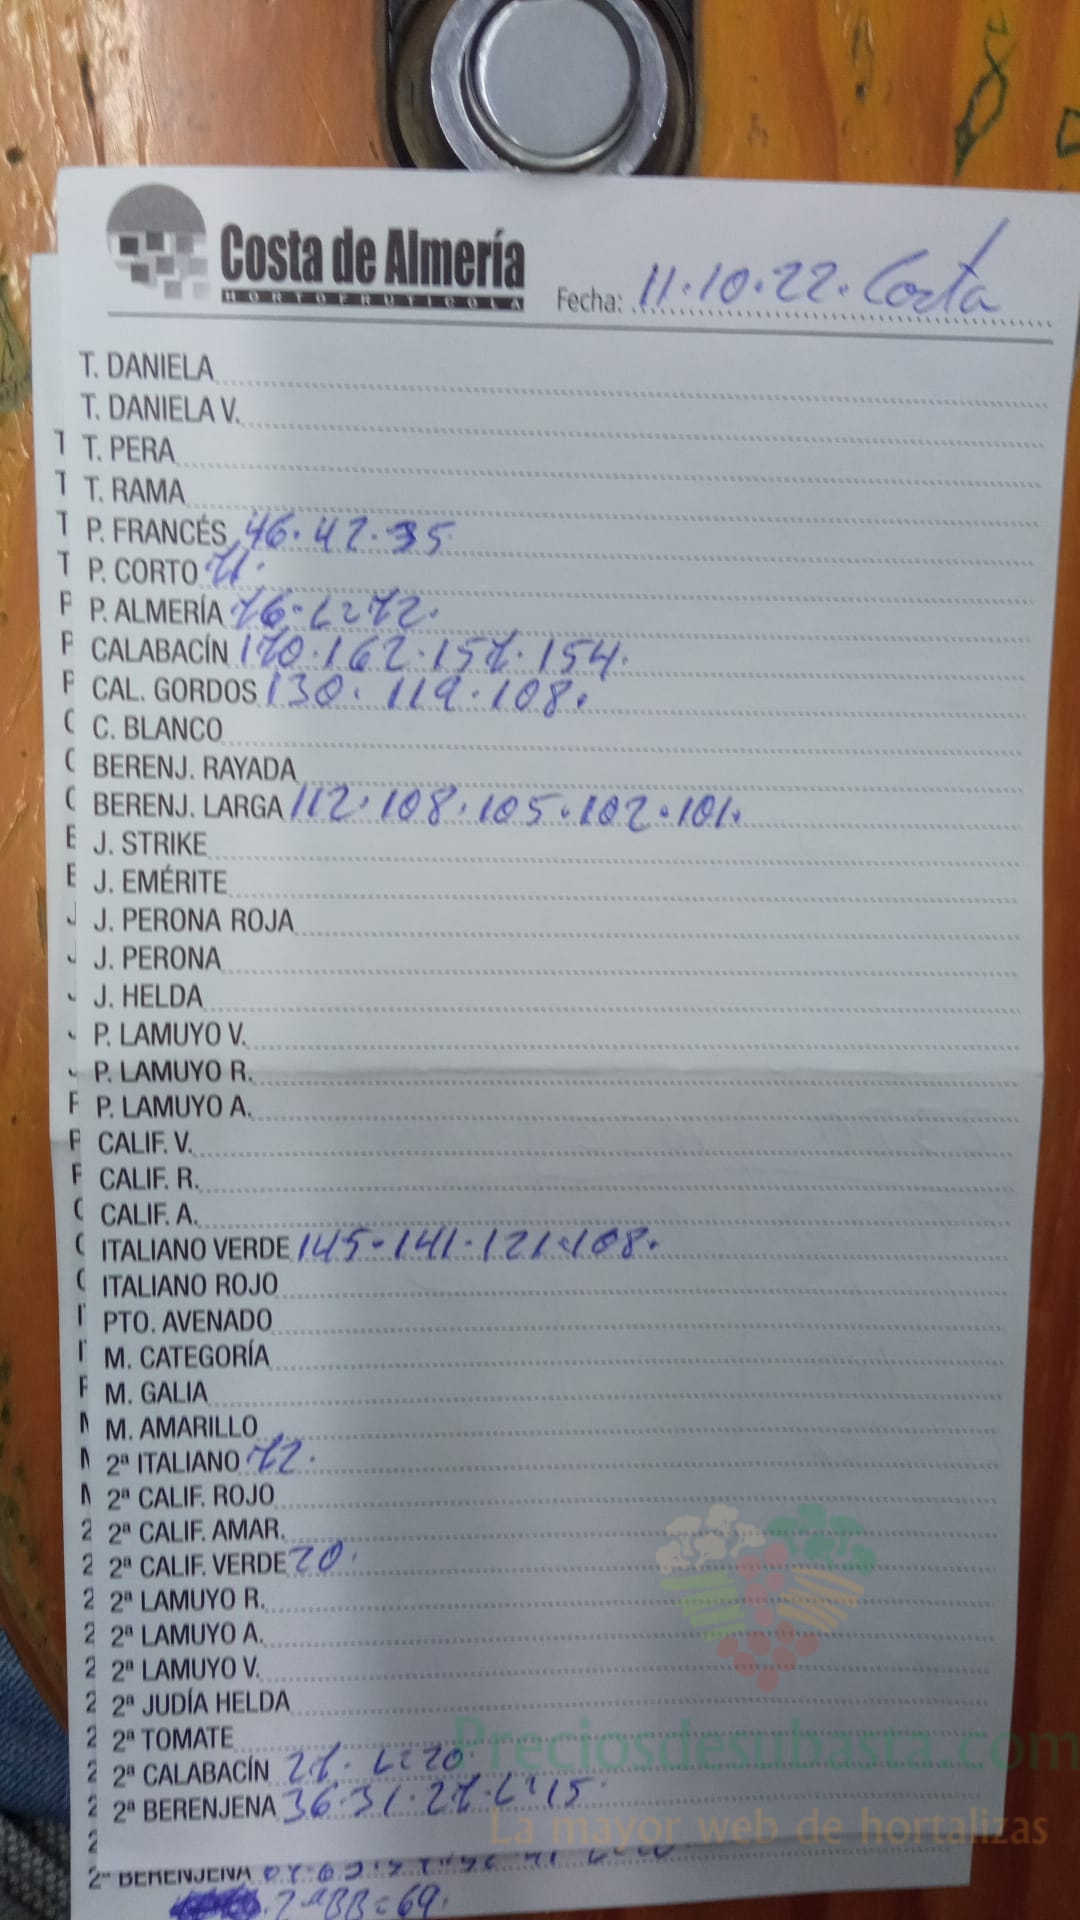 Costa de Almería
HORTOFRUTICOLA
Fecha: 11.10.22. Costa
T. DANIELA
T. DANIELA V.
T. PERA
T. RAMA
P. FRANCÉS 46.42.35
P. CORTO 71.
P. ALMERÍA 76-L=72.
CALABACÍN 170.162.157.154.
CAL. GORDOS 130.119.108.
C. BLANCO
BERENJ. RAYADA
BERENJ. LARGA 112.108.105.102.101.
J. STRIKE
J. EMÉRITE
J. PERONA ROJA
J. PERONA
J. HELDA
P. LAMUYO V.
P. LAMUYO R.
P. LAMUYO A.
CALIF. V.
CALIF. R.
CALIF. A.
ITALIANO VERDE 145-141.121.108.
ITALIANO ROJO
PTO. AVENADO
M. CATEGORÍA
M. GALIA
M. AMARILLO
2ª ITALIANO 72.
2ª CALIF. ROJO
2ª CALIF. AMAR.
2ª CALIF. VERDE 20.
2ª LAMUYO R.
2ª LAMUYO A.
2ª LAMUYO V.
2ª JUDÍA HELDA
2ª TOMATE
2ª CALABACÍN 27. L=20.
2ª BERENJENA 36.31.27.L=15.
Preciosdesubasta.com
La mayor web de hortalizas
2ª BERENJENA
2ªBB=69.